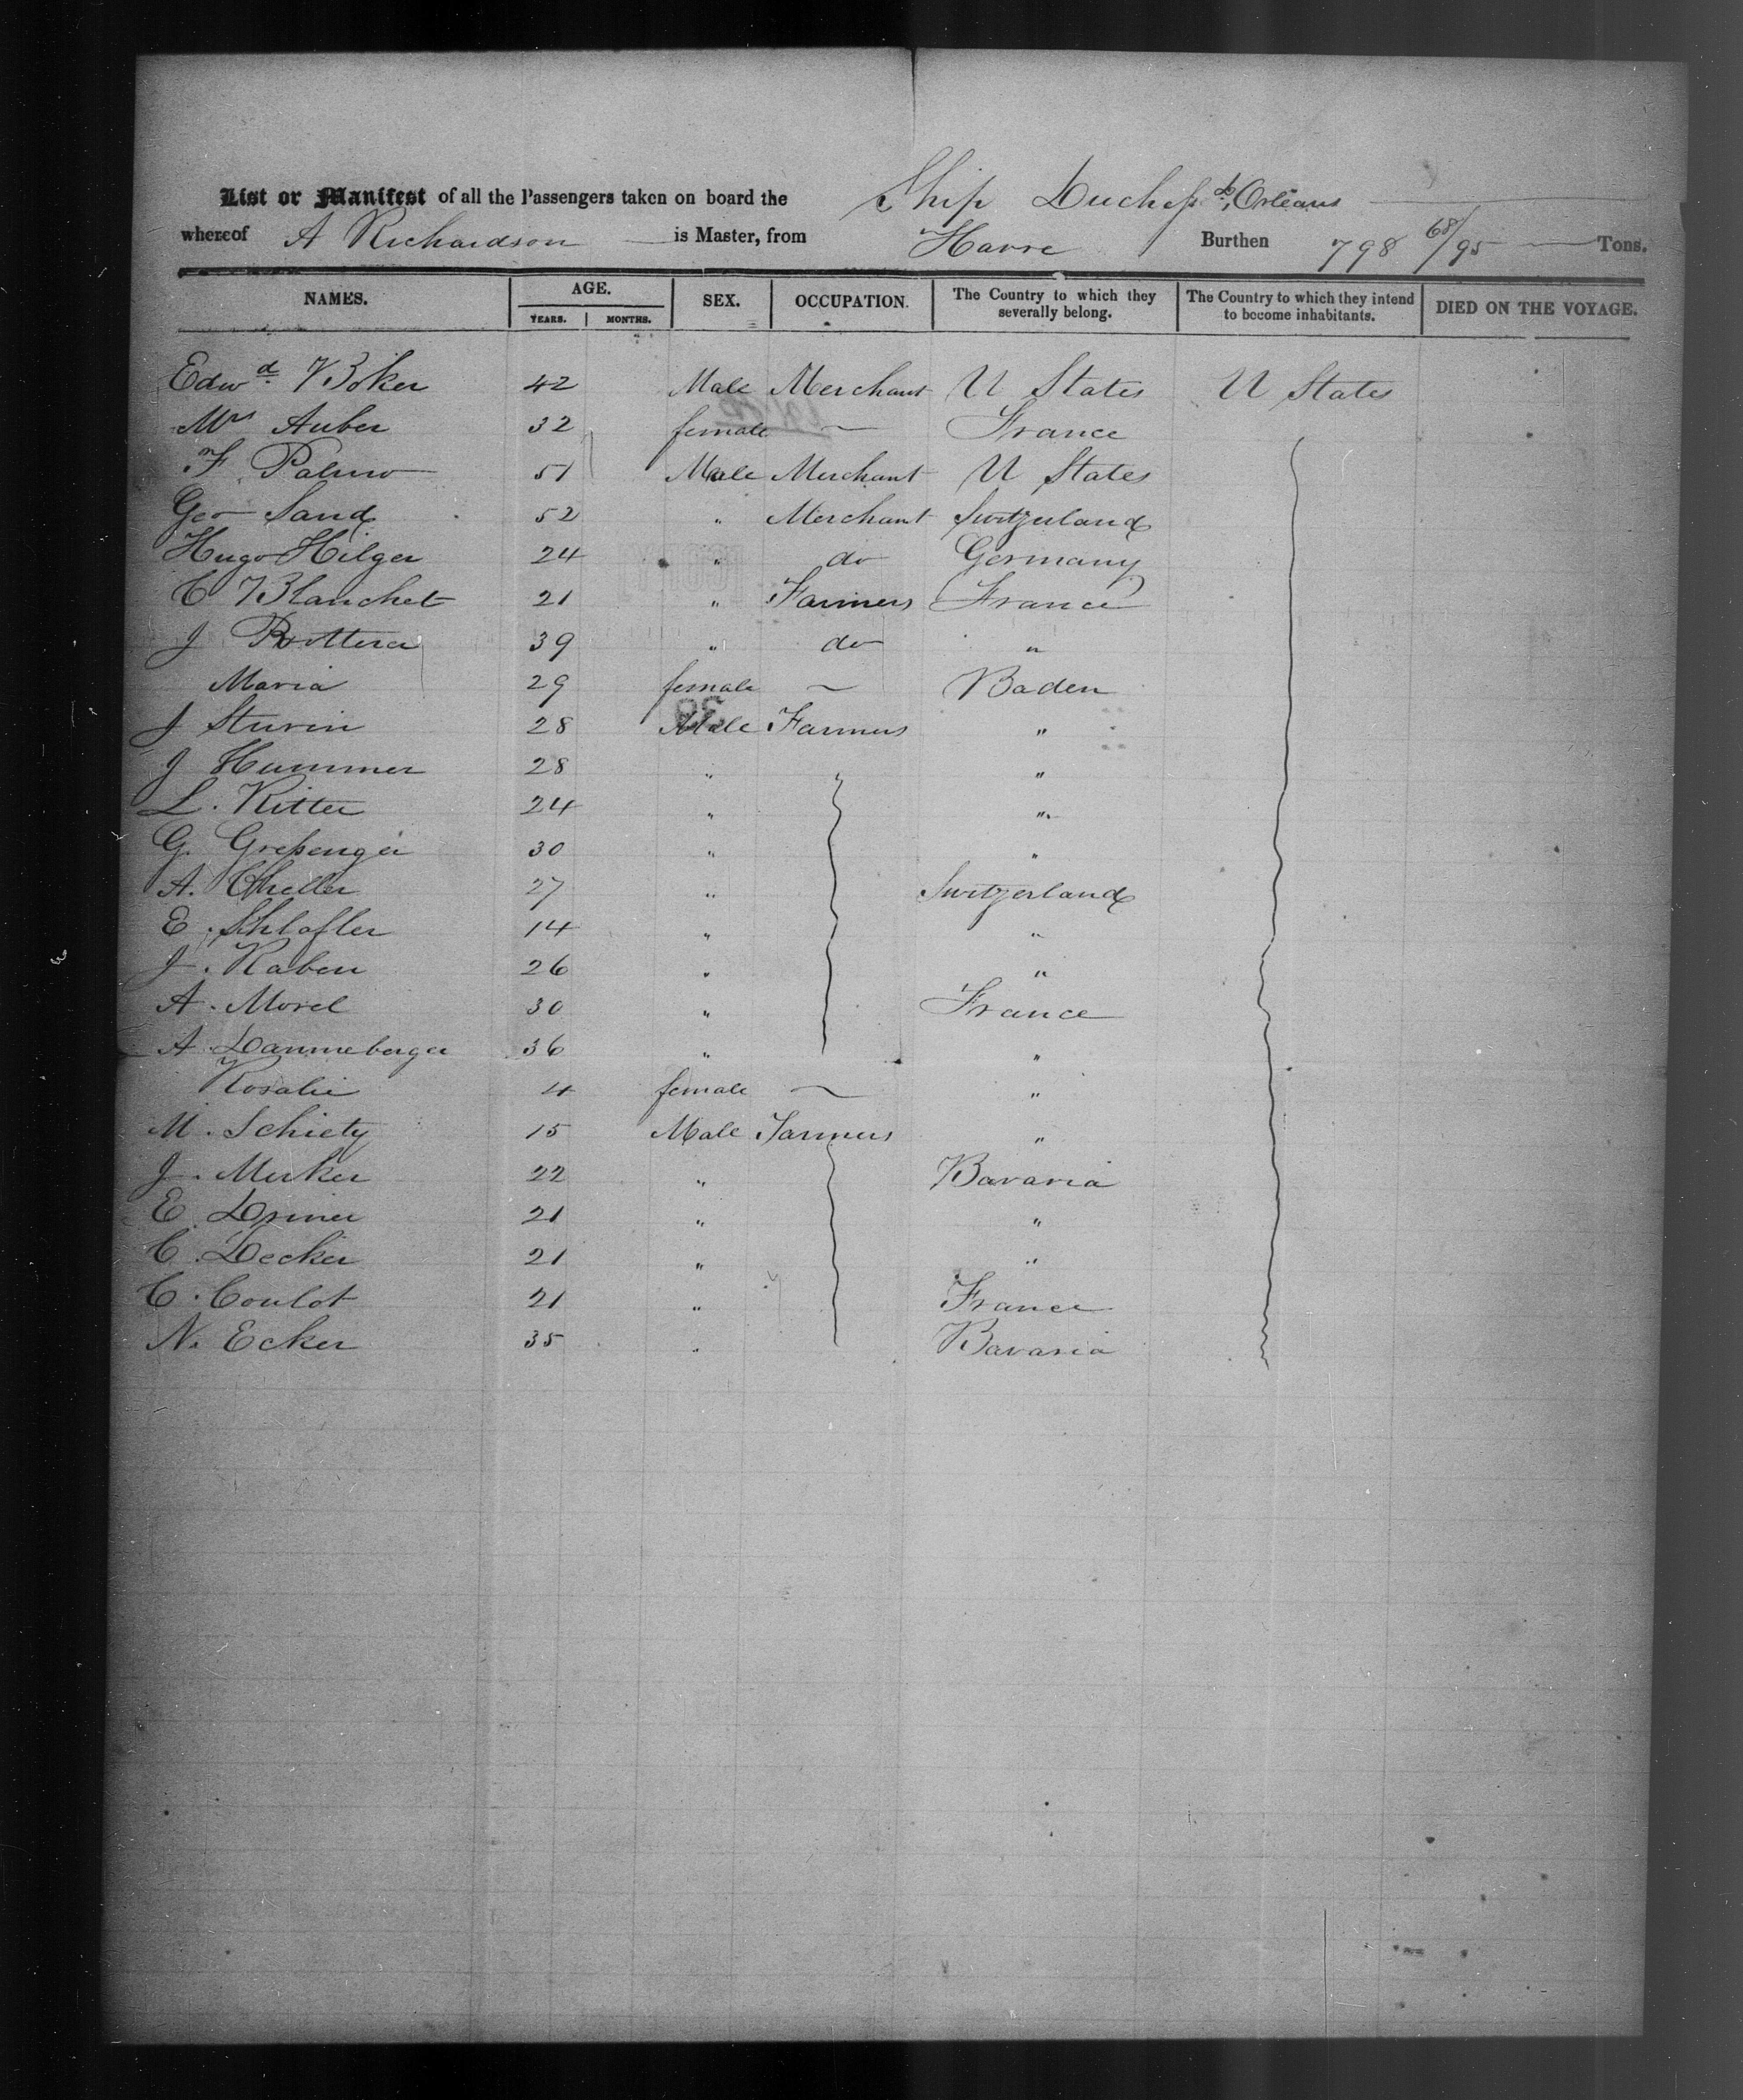 List or Manifest of all the Passengers taken on board the Ship Duchess d'Orleans
whereof A Richardson is Master, from Havre Burthen 798 68/95 Tons.
NAMES. AGE. SEX. OCCUPATION. The Country to which they severally belong. The Country to which they intend to become inhabitants. DIED ON THE VOYAGE.
YEARS. MONTHS.
Edwd Boker 42 Male Merchant U States U States
Mrs Auber 32 female — France
F. Palmo 51 Male Merchant U States
Geo Sand 52 " Merchant Switzerland
Hugo Hilger 24 " do Germany
C Blanchet 21 " Farmers France
J 39 " do "
Maria 29 female — Baden
J Sturin 28 Male Farmers "
J Hummer 28 " "
L. Ritter 24 " "
G. Gressenger 30 " "
A. 27 " Switzerland
E. Schlafler 14 " "
J. Raben 26 " "
A. Morel 30 " France
A. Danneberger 36 " "
Rosalie 4 female — "
M. Schiety 15 Male Farmers "
J. Merker 22 " Bavaria
E. 21 " "
C. Decker 21 " "
C. Coulot 21 " France
N. Ecker 35 " Bavaria